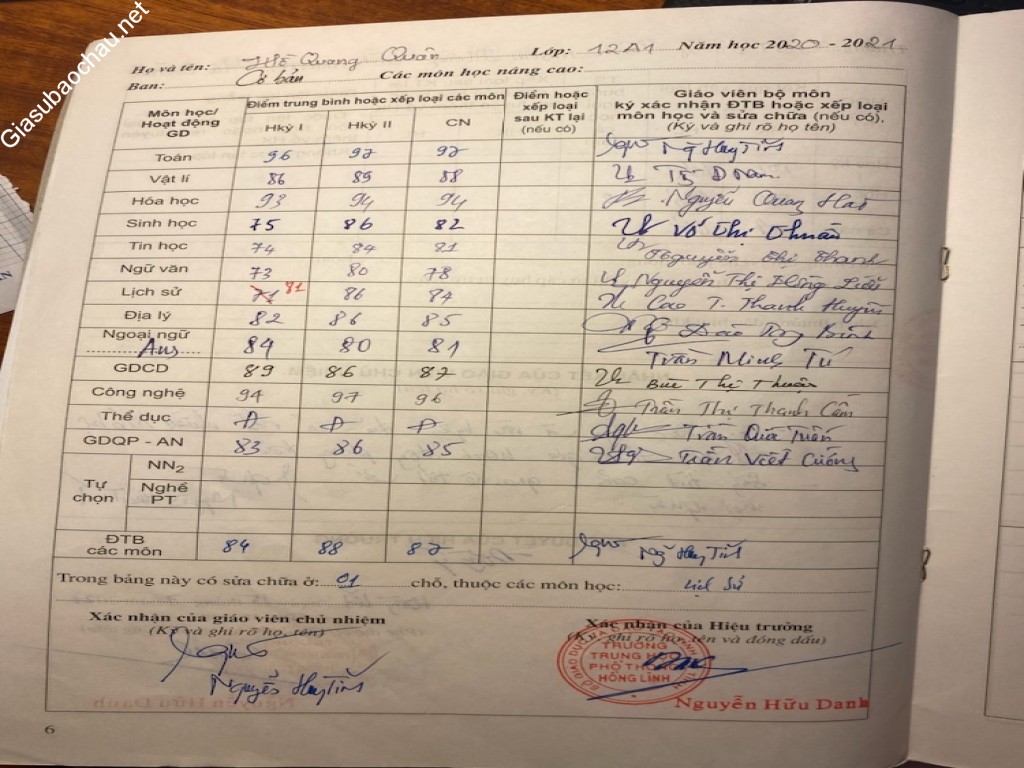 Giasubaochau.net
Họ và tên: Hồ Quang Quân Lớp: 12A1 Năm học 2020 - 2021
Ban: Cơ bản Các môn học nâng cao:
Môn học/ Hoạt động GD
Điểm trung bình hoặc xếp loại các môn
Hkỳ I Hkỳ II CN
Điểm hoặc xếp loại sau KT lại (nếu có)
Giáo viên bộ môn ký xác nhận ĐTB hoặc xếp loại môn học và sửa chữa (nếu có), (Ký và ghi rõ họ tên)
Toán 96 97 97 Ng Huy Tĩnh
Vật lí 86 89 88
Hóa học 93 94 94 Nguyễn Quang Hải
Sinh học 75 86 82 Võ Thị Thuần
Tin học 74 84 81 Nguyễn Thị Thanh
Ngữ văn 73 80 78 Nguyễn Thị Hồng
Lịch sử 71 81 86 84 Cao T. Thanh Huyền
Địa lý 82 86 85 Bính
Ngoại ngữ
Anh 84 80 81 Trần Minh Tú
GDCD 89 86 87 Bùi Thị Thuận
Công nghệ 94 97 96 Trần Thị Thanh Cẩm
Thể dục Đ Đ Đ Trần Quốc Tuấn
GDQP - AN 83 86 85 Trần Viết Cường
Tự chọn
NN2
Nghề PT
ĐTB các môn 84 88 87 Ng Huy Tĩnh
Trong bảng này có sửa chữa ở: 01 chỗ, thuộc các môn học: Lịch Sử
Xác nhận của giáo viên chủ nhiệm
(Ký và ghi rõ họ, tên)
Nguyễn Huy Tĩnh
Xác nhận của Hiệu trưởng
(Ký ghi rõ họ, tên và đóng dấu)
TRƯỜNG
TRUNG HỌC
PHỔ THÔNG
HỒNG LĨNH
Nguyễn Hữu Danh
6